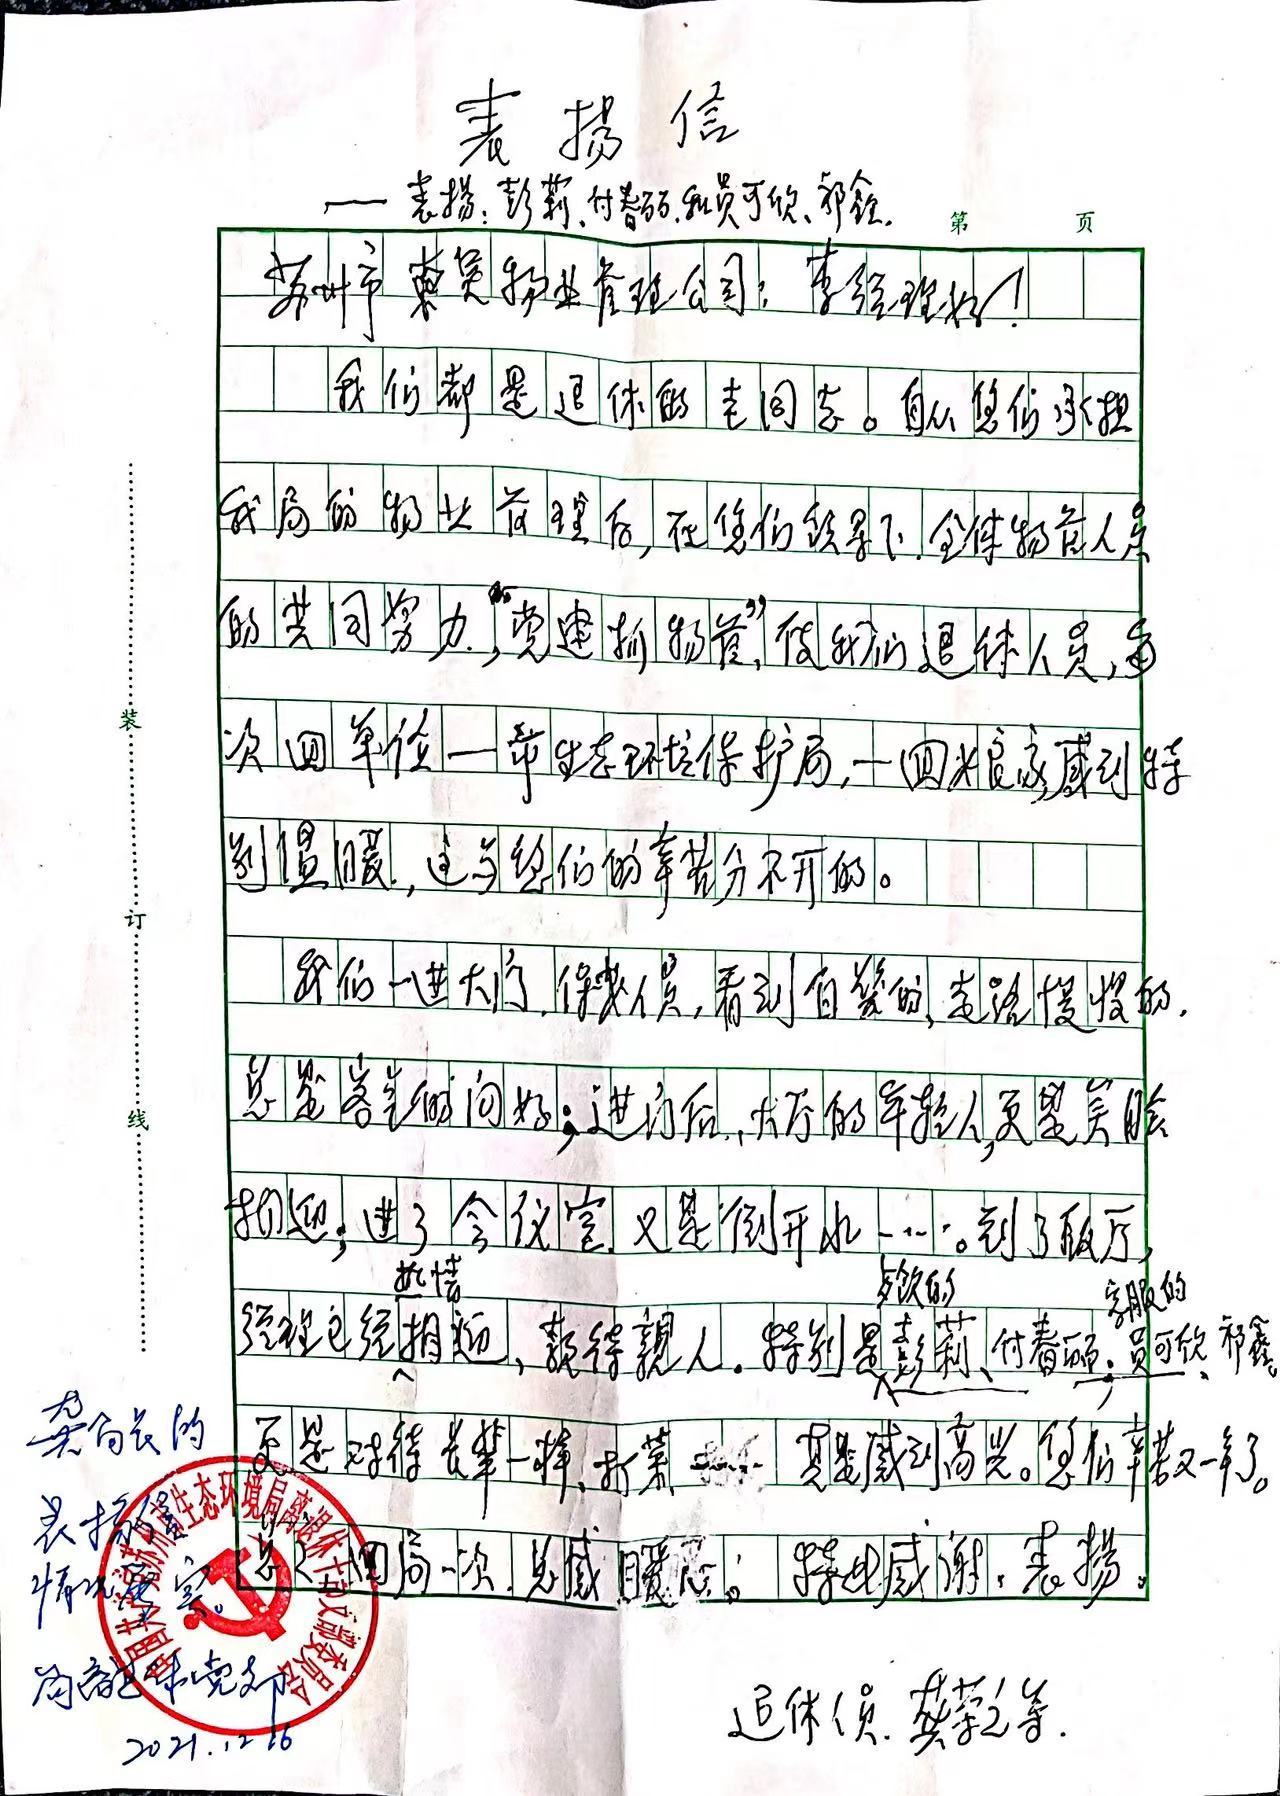 表扬信
——表扬：彭莉、付春丽、和员可欣、祁鑫.
第 页
苏州市东吴物业管理公司：李经理好！
我们都是退休的老同志。自从您们承担
我局的物业管理后，在您们领导下.全体物管人员
的共同努力，“党建抓物管”，使我们退休人员，每
次回单位一市生态环境保护局，一回娘家，感到特
别温暖，这与您们的辛苦分不开的。
我们一进大门.保安人员，看到白发的，走路慢慢的.
总是客气的问好；进门后，大厅的年轻人，更是笑脸
相迎；进了会议室.又是倒开水……。到了饭厅，
热情 餐饮的 客服的
经理已经相迎，款待亲人.特别是彭莉、付春丽；员可欣、祁鑫。
更是对待长辈一样、打菜…… 真是感到高兴。您们辛苦又一年了。
总之回局一次.总感暖心. 特此感谢、表扬.
退休人员. 龚
装 订 线
龚局长的
表扬信
情况属实。
党支部
2021.12.16